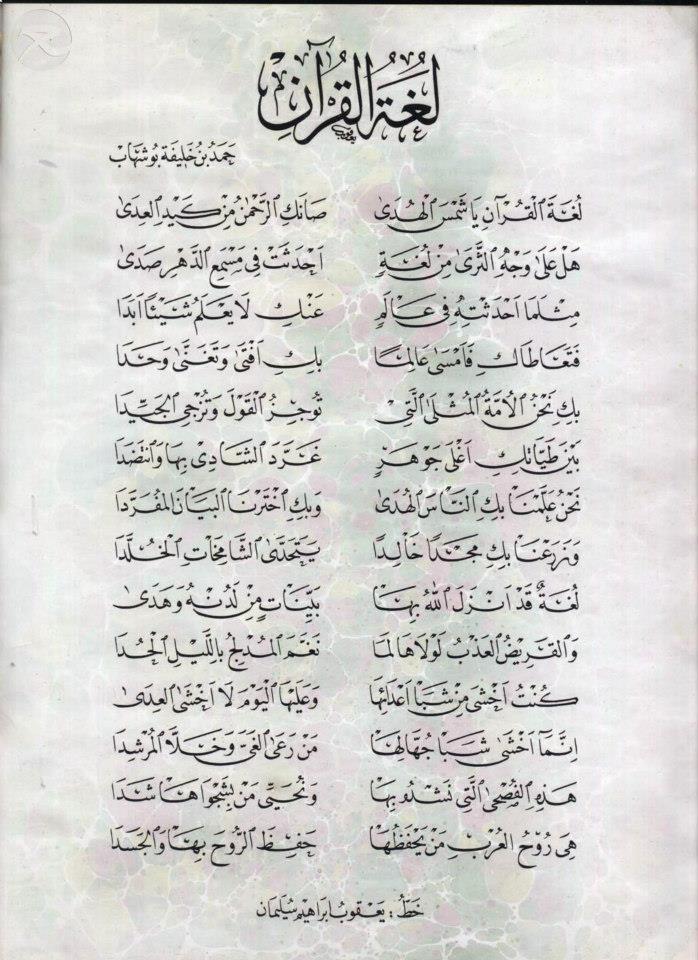 لُغَةُ الْقُرْآنِ
حَمَدُ بْنُ خَلِيفَة بُوشِهَاب
لُغَةَ الْقُرْآنِ يَا شَمْسَ الْهُدَىٰ صَانَكِ الرَّحْمٰنُ مِنْ كَيْدِ الْعِدَىٰ
هَلْ عَلَىٰ وَجْهِ الثَّرَىٰ مِنْ لُغَةٍ اَحْدَثَتْ فِي مَسْمَعِ الدَّهْرِ صَدَىٰ
مِثْلَمَا اَحْدَثْتِهِ فِي عَالَمٍ عَنْكِ لَا يَعْلَمُ شَيْئًا اَبَدَا
فَتَعَاطَاكِ فَاَمْسَىٰ عَالِمًا بِكِ اَفْتَىٰ وَتَغَنَّىٰ وَحَدَا
بِكِ نَحْنُ الْاُمَّةُ الْمُثْلَىٰ الَّتِي تُوجِزُ الْقَوْلَ وَتُزْجِي الْجَيِّدَا
بَيْنَ طَيَّاتِكِ اَغْلَىٰ جَوْهَرٍ غَرَّدَ الشَّادِي بِهَا وَانْتَضَدَا
نَحْنُ عَلَّمْنَا بِكِ النَّاسَ الْهُدَىٰ وَبِكِ اخْتَرْنَا الْبَيَانَ الْمُفْرَدَا
وَزَرَعْنَا بِكِ مَجْدًا خَالِدًا يَتَحَدَّىٰ الشَّامِخَاتِ الْخُلَّدَا
لُغَةٌ قَدْ اَنْزَلَ اللّٰهُ بِهَا بَيِّنَاتٍ مِنْ لَدُنْهُ وَهُدَىٰ
وَالْقَرِيضُ الْعَذْبُ لَوْلَاهَا لَمَا نَغَّمَ الْمُدْلِجُ بِاللَّيْلِ الْحُدَا
كُنْتُ اَخْشَىٰ مِنْ شَبَا اَعْدَائِهَا وَعَلَيْهَا الْيَوْمَ لَا اَخْشَىٰ الْعِدَىٰ
اِنَّمَا اَخْشَىٰ شَبَا جُهَّالِهَا مَنْ رَعَىٰ الْغَيَّ وَخَلَّا الْمُرْشِدَا
هَذِهِ الْفُصْحَىٰ الَّتِي نَشْدُو بِهَا وَنُحَيِّي مَنْ بِشَجْوَاهَا شَدَا
هِيَ رُوحُ الْعُرْبِ مَنْ يَحْفَظُهَا حَفِظَ الرُّوحَ بِهَا وَالْجَسَدَا
خَطُّ : يَعْقُوب اِبْرَاهِيم سُلَيْمَان